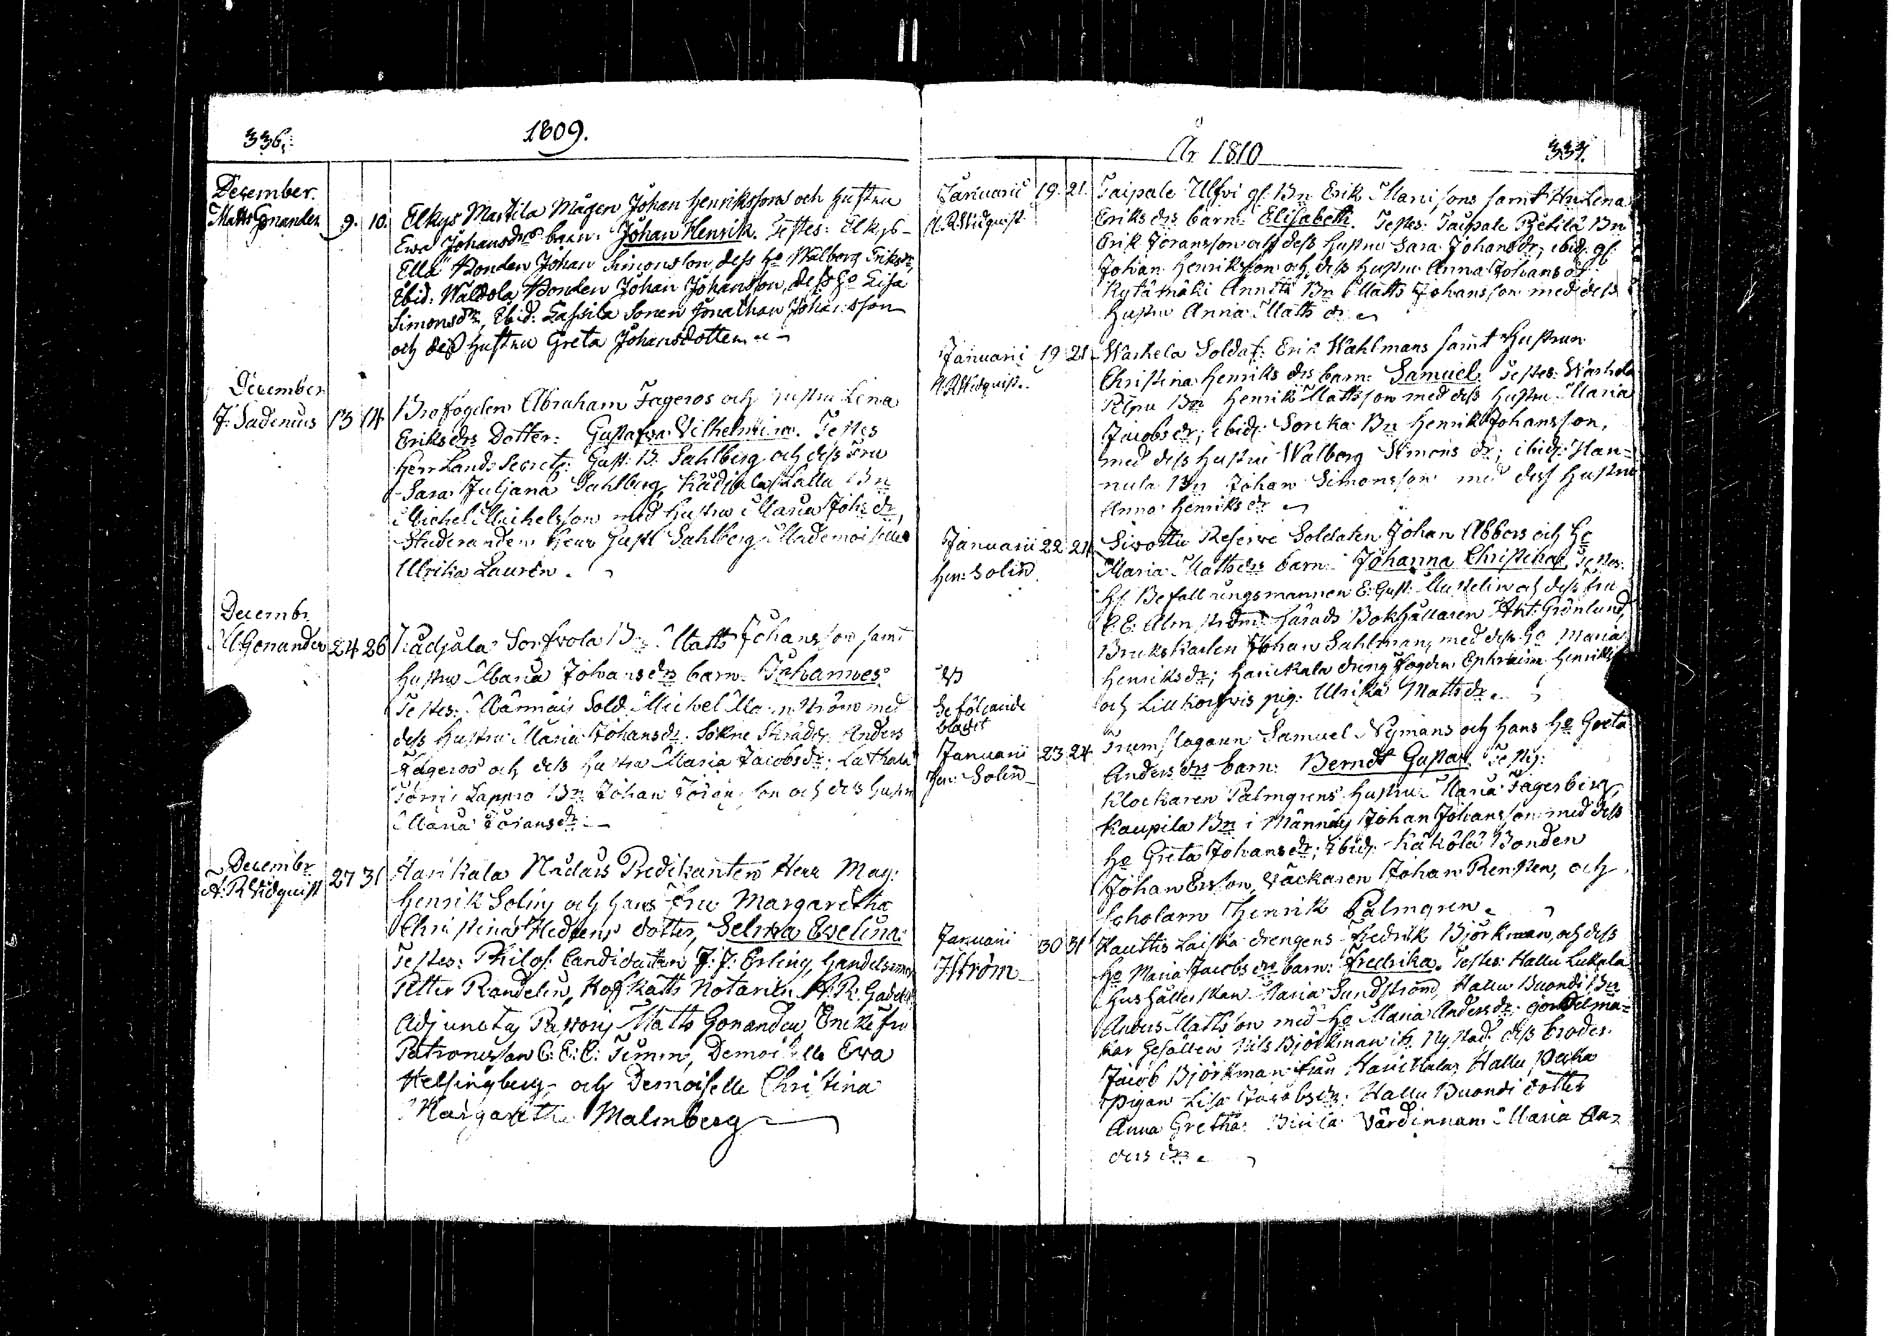 336.
1809.
December.
Matts Gonander 9. 10. Elkys Martila Mågen Johan Henrikssons och Hustru
Ewa Johansdrs barn: Johan Henrik. Testes: Elkys-
Ella Bonden Johan Simonsson, dess Ho Walborg Eriksdr,
Ebid: Waldola Bonden Johan Johansson, dess Ho Lisa
Simonsdr, Ebid: Lassila Sonen Jonathan Johansson
och dess Hustru Greta Johansdotter.
December
J: Sadenius 13 14 Brofogden Abraham Fageros och Hustru Lena
Eriksdrs Dotter: Gustafva Vilhelmina. Testes
Herr Lands Secret: Gust: B: Sahlberg och dess Fru
Sara Juljana Sahlberg, Kadjala Kallu Bn
Michel Michelsson med Hustru Maria Joh: dr,
Studeranden Herr Gust Sahlberg, Mademoiselle
Ulrika Lauren.
Decembr
M Gonander 24 26 Kadjala Sorfvola Bn Matts Johansson samt
Hustru Maria Johansdrs barn: Johannes
Testes: Männäis Sold: Michel med
dess Hustru Maria Johansdr. Sokne Skrädd: Anders
Fageros och dess Hustru Maria Jacobsdr; Lathala
Lappro Bn Johan och dess Hustru
Maria Göransdr.
Decembr
A. R Widquist 27 31 Harikala Nådårs Predikanten Herr Mag:
Henrik Solin och hans Fru Margaretha
Christina dotter, Selma Evelina.
Testes: Philos: Candidaten J: J: Erling, Handelsman
Petter Randelin, Hofrätts Notarien A. R:
Adjuncten Pastor Matts Gonander, Enkefru
Patronessan C: E: C: Timm, Demoiselle Ewa
Helsingberg, och Demoiselle Christina
Margaretha Malmberg
År 1810
337.
Januarii 19. 21. Taipale Ulfvi gl. Bn Erik Marissons samt Hn Lena
A. R Widquist Eriksdrs barn: Elisabeth. Testes: Taipale Prettilä Bn
Erik Göransson och dess Hustru Sara Johansdr, ibid: gl.
Johan Henriksson och dess Hustru Anna Johansdr
Kytämäki Annita Bn Matts Johansson med dess
Hustru Anna Matsdr
Januarii 19 21 Warhela Soldat: Erik Wahlmans samt Hustrun
A. R Widquist. Christina Henriksdrs barn: Samuel. Testes: Warhela
Bn Henrik Mattsson med dess Hustru Maria
Jacobsdr; ibid: Sorkka Bn Henrik Johansson,
med dess Hustru Walborg Simonsdr; ibid: Han=
nula Bn Johan Simonsson med dess Hustru
Anna Henriksdr
Januarii 22 24 Sivottu Reserve Soldaten Johan Abbors och Ho
Hen: Solin. Maria Matsdrs barn: Johanna Christina. Testes:
Hr Befallningsmannen E: Gust: Mustelin och dess Fru
C: E: Almström Härads Bokhållaren Ant: Grönlund,
Brukskarlen Johan Sahlman, med dess Ho Maria
NB Henriksdr; Harickala dräng Fogden Ephraim Henriksson
Se följande och Lill pig: Ulrika Mattsdr.
bladet
Januarii 23 24 Trumslagaren Samuel Nymans och hans Ho Greta
Hen: Solin Andersdrs barn: Berndt Gustaf. Testes:
Klockaren Palmgrens Hustru Maria Fagerberg,
Kaupila Bn i Männäis Johan Johansson med dess
Ho Greta Johansdr; Ebid: Käkölä Bonden
Johan Ersson, Väckaren Johan Rensten, och
Scholaren Henrik Palmgren.
Januarii 30 31 Hauttis Laiska drengens Fredrik Björkman, och dess
Ström Ho Maria Jacobsdrs barn: Fredrika. Testes: Hallu Lukala
Hushållerskan Maria Sundström, Hallu Buondi Bn
Anders Mattsson med Ho Maria Andersdr. Gördelma=
kar Gesällen Nils Björkman ifr. Nystad, dess broder
Jacob Björkman från Harickala, Hallu Pecka
Pigan Lisa Jacobsdr: Hallu Buondi dotter
Anna Gretha. Värdinnan Maria An=
dersdr.